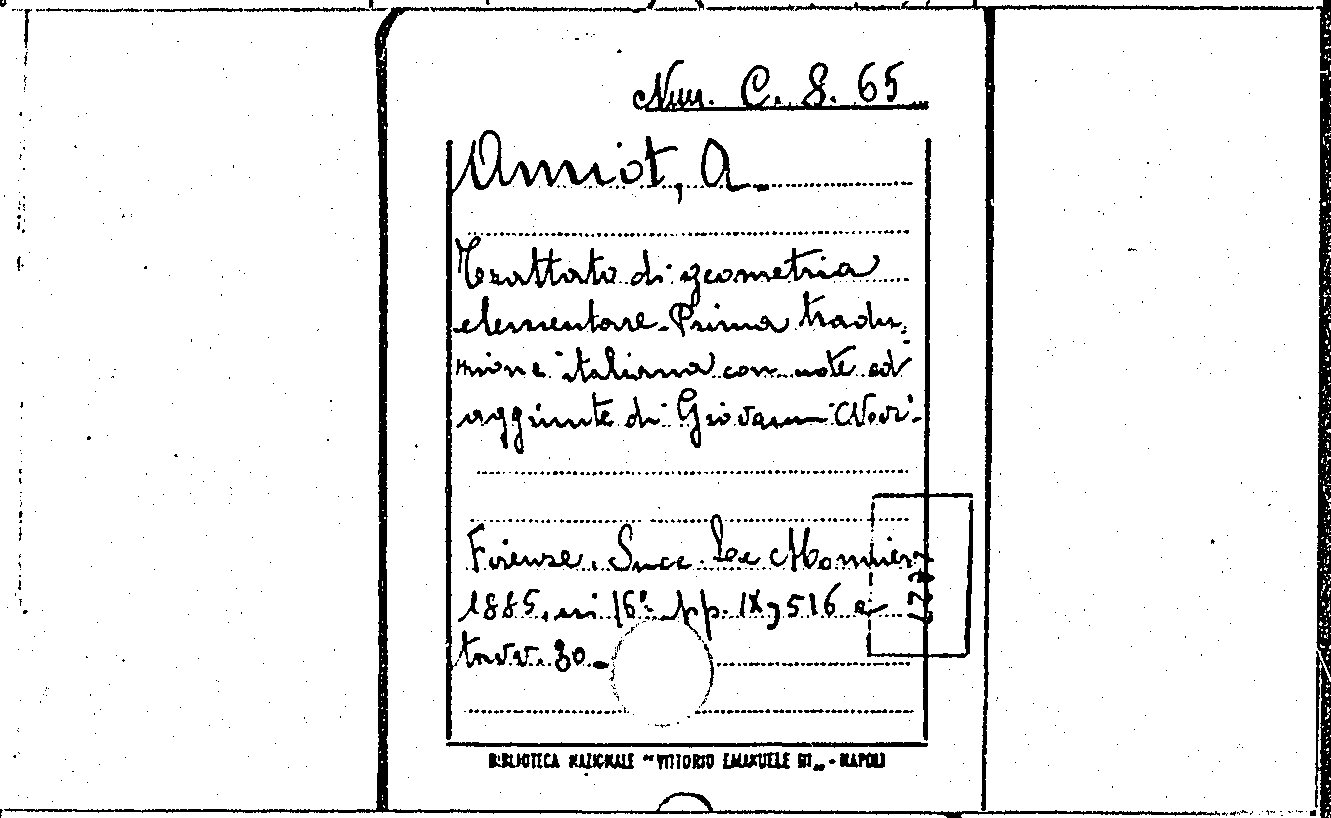 Num. C. S. 65
Amiot, A.
Trattato di geometria
elementare. Prima tradu-
zione italiana con note ed
aggiunte di Giovanni Novi.
Firenze. Succ. Le Monnier
1885, in 16°. pp. IX, 516 e
tavv. 30.
BIBLIOTECA NAZIONALE "VITTORIO EMANUELE III" - NAPOLI